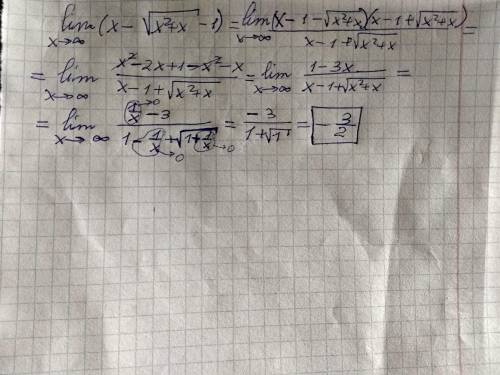 lim x→∞ (x - √(x²+x) - 1) = lim x→∞ (x - 1 - √(x²+x))(x - 1 + √(x²+x)) / (x - 1 + √(x²+x)) =
= lim x→∞ (x² - 2x + 1 - x² - x) / (x - 1 + √(x²+x)) = lim x→∞ (1 - 3x) / (x - 1 + √(x²+x)) =
= lim x→∞ (1/x →0 - 3) / (1 - 1/x →0 + √(1 + 1/x →0)) = -3 / (1 + √1) = -3/2